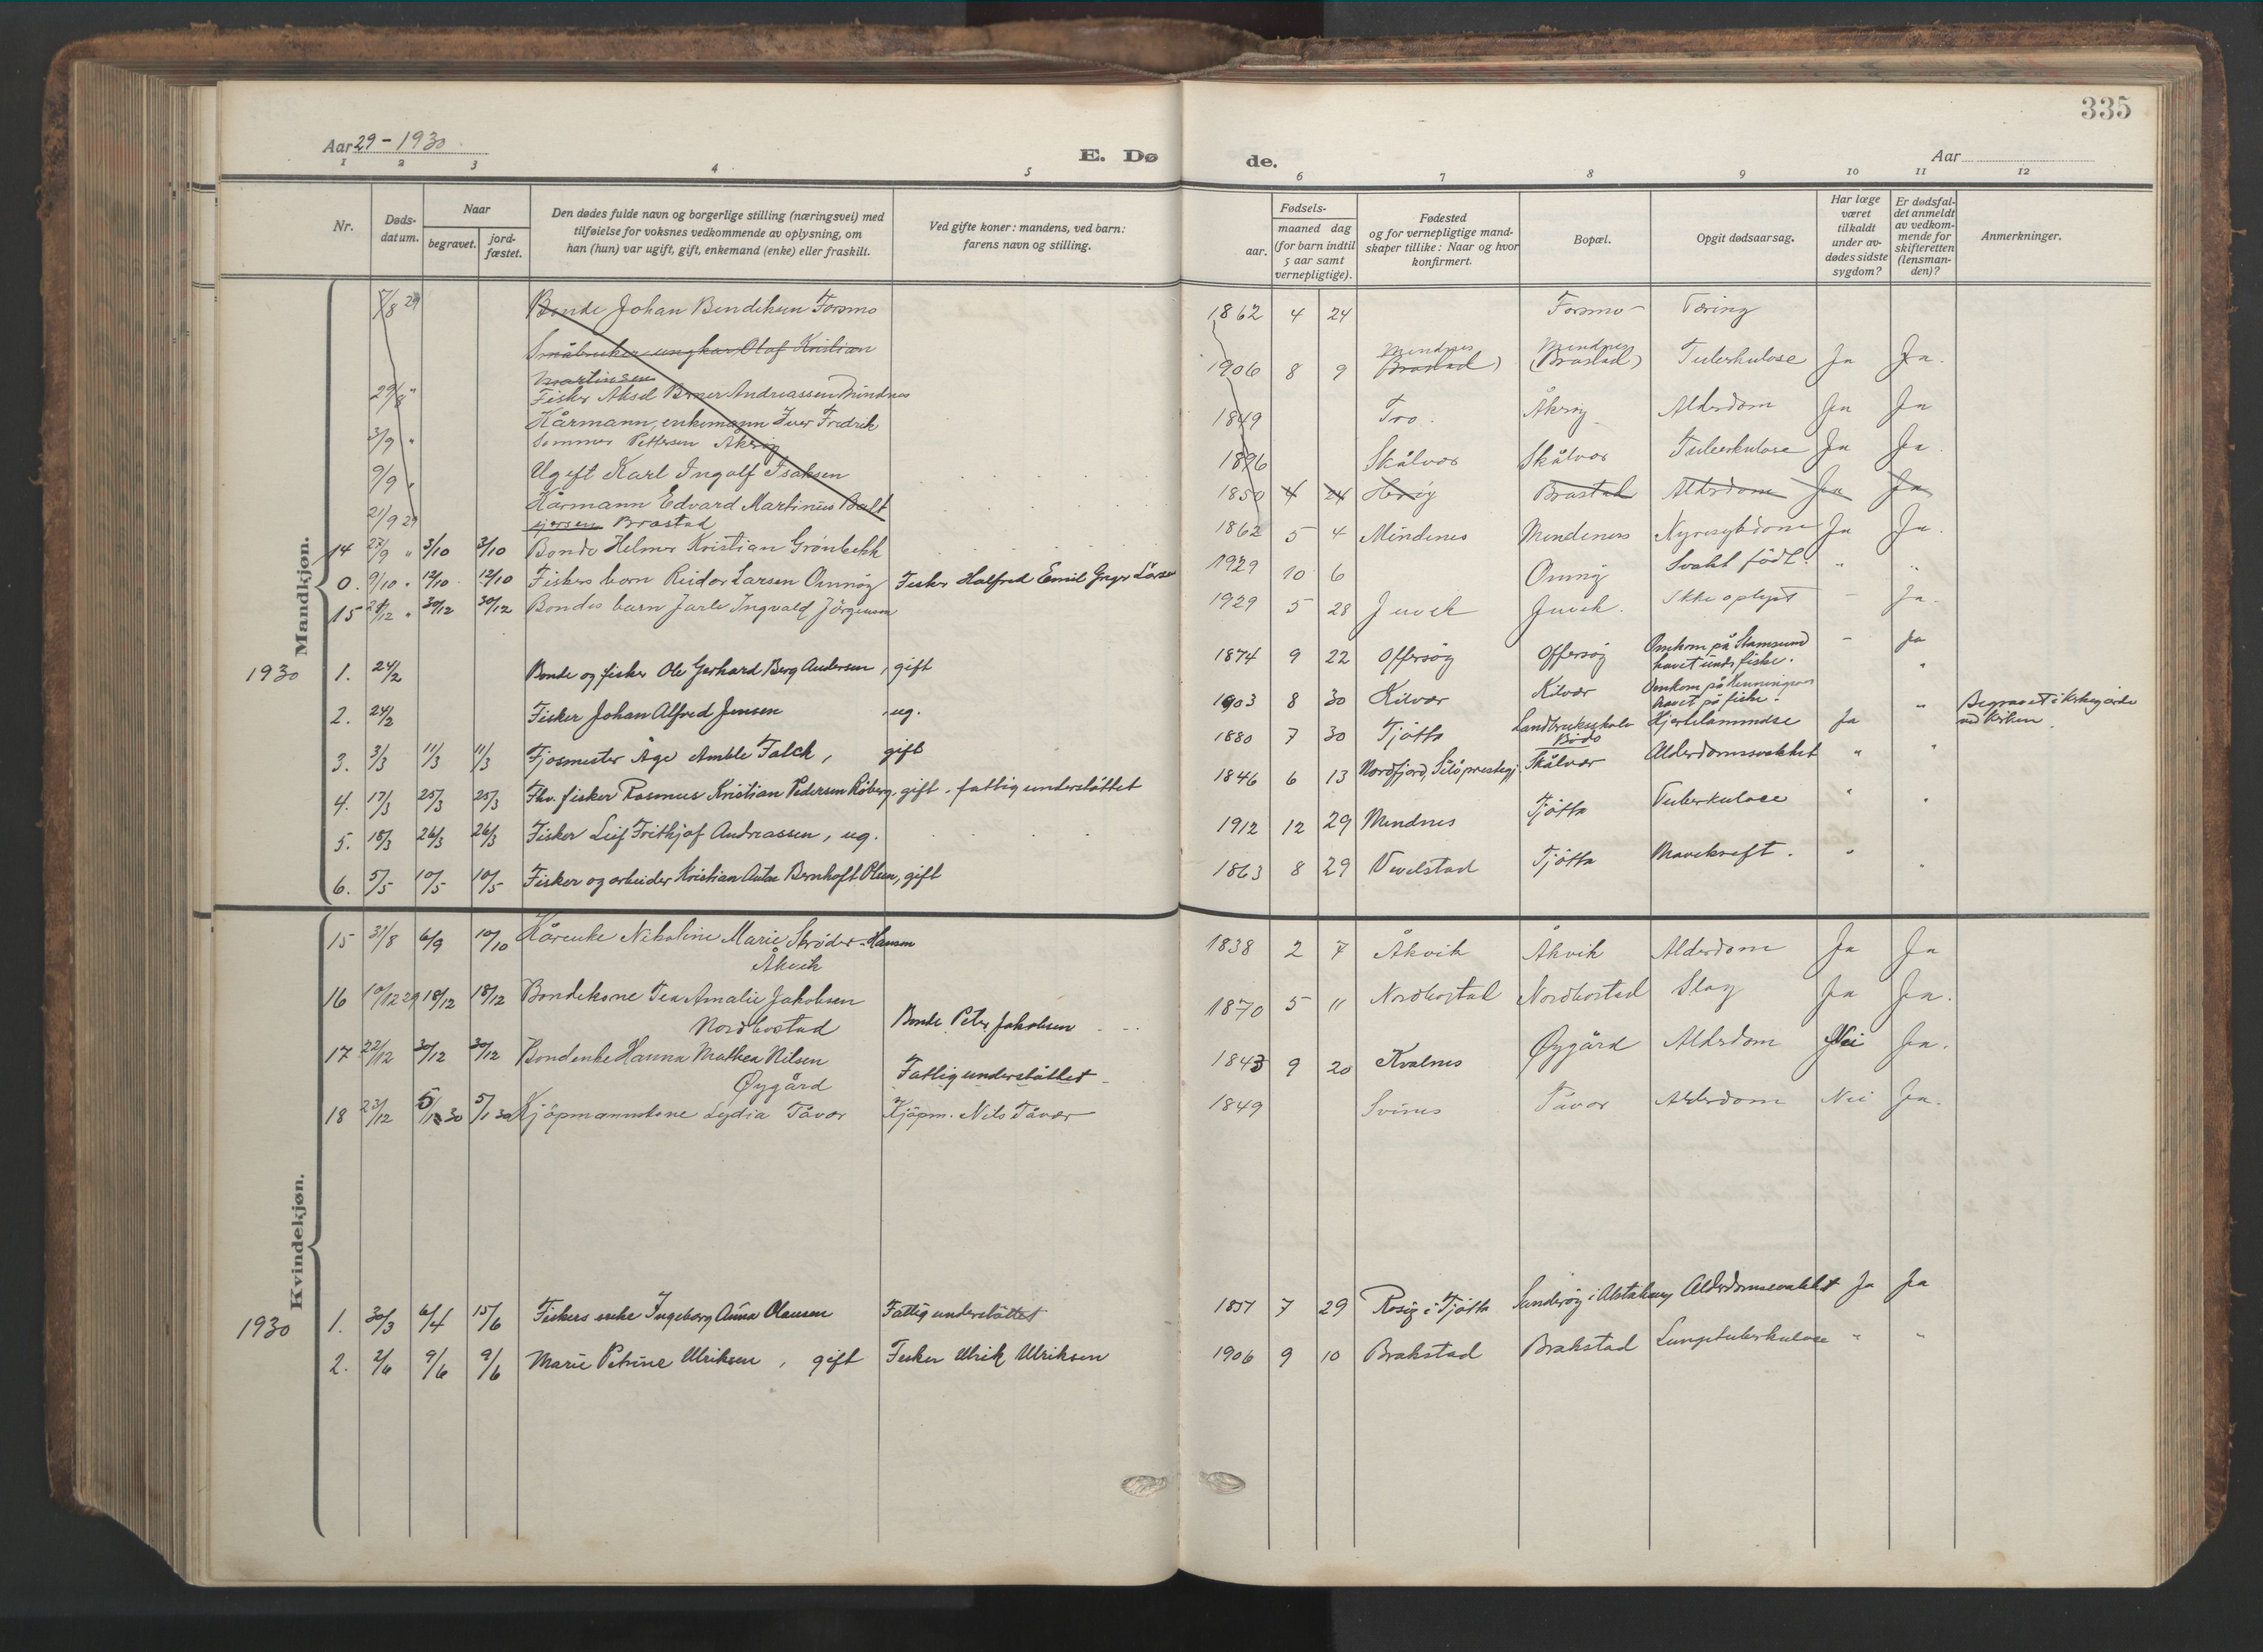 335
Aar 29 - 1930
E. Dø de.
Aar
1 2 3 4 5 6 7 8 9 10 11 12
Nr.
Døds-
datum.
Naar
begravet.
jord-
fæstet.
Den dødes fulde navn og borgerlige stilling (næringsvei) med
tilføielse for voksnes vedkommende av oplysning, om
han (hun) var ugift, gift, enkemand (enke) eller fraskilt.
Ved gifte koner: mandens, ved barn:
farens navn og stilling.
Fødsels-
aar.
maaned dag
(for barn indtil
5 aar samt
vernepligtige).
Fødested
og for vernepligtige mand-
skaper tillike: Naar og hvor
konfirmert.
Bopæl.
Opgit dødsaarsag.
Har læge
været
tilkaldt
under av-
dødes sidste
sygdom?
Er dødsfal-
det anmeldt
av vedkom-
mende for
skifteretten
(lensman-
den)?
Anmerkninger.
Mandkjøn.
5/8 29 Bonde Johan Bendiksen Forsmo 1862 4 24 Forsmo - Tæring
Småbruker ungkar Olaf Kristian
Martinsen
29/8 " Fisker Aksel Berner Andreassen Mindnes 1906 8 9 Mindnes (Brastad) Mindnes (Brastad) Tuberkulose Ja Ja.
Kårmann, enkemann Iver Fredrik
3/9 " Sommer Pettersen Åkerøy 1849 Tro. Åkerøy Alderdom Ja Ja
9/9 " Ugift Karl Ingolf Isaksen 1896 Skålvær Skålvær Tuberkulose Ja Ja
Kårmann Edvard Martinus Balt
21/9 29 Brastad 1850 4 24 Herøy Brastad Alderdom Ja Ja
14 27/9 " 3/10 3/10 Bonde Helmer Kristian Grønbekk 1862 5 4 Mindenes Mindenes Nyresykdom Ja Ja.
0. 9/10 " 12/10 12/10 Fiskers barn Reidar Larsen Omnøy Fisker Halfred Emil Larsen 1929 10 6 Omnøy Svakt født. " "
15 /12 " 30/12 30/12 Bondes barn Jarle Ingvald Jørgensen 1929 5 28 Juvik Juvik. Ikke oplyst - Ja.
1930 1. 24/2 Bonde og fisker Ole Gerhard Berg Andersen, gift 1874 9 22 Offersøy Offersøy Omkom på Stamsund havet under fiske. - Ja
2. 24/2 Fisker Johan Alfred Jensen , ug. 1903 8 30 Kilvær Kilvær Omkom på Henningsvær havet på fiske. "
3. 3/3 11/3 11/3 Fjøsmester Åge Amble Falck, gift 1880 7 30 Tjøtta Landbruksskole Bodø Hjertelammelse Ja " Begravet i kirkegården ved kirken.
4. 17/3 25/3 25/3 Fhv. fisker Rasmus Kristian Pedersen Råberg, gift. fattigunderstøttet 1846 6 13 Nordfjord, Skålvær Alderdomssvakhet " "
5. 18/3 26/3 26/3 Fisker Leif Frithjof Andreassen, ug. 1912 12 29 Mindnes Tjøtta Tuberkulose " "
6. 5/5 10/5 10/5 Fisker og arbeider Kristian Anton Bernhoft Olsen, gift 1863 8 29 Vevelstad Tjøtta Mavekreft. " "
Kvindekjøn.
15 31/8 6/9 10/10 Kårenke Nikoline Marie Skrøder-Hansen 1838 2 7 Åkvik Åkvik Alderdom Ja Ja
Åkvik
16 10/12 29 18/12 18/12 Bondekone Tea Amalie Jakobsen 1870 5 11 Nordbostad Nordbostad Slag Ja Ja.
Nordbostad Bonde Peter Jakobsen
17 22/12 30/12 30/12 Bondenke Hanna Mathea Nilsen 1843 9 20 Kvalnes Øygård Alderdom Nei Ja.
Øygård Fattigunderstøttet
18 23/12 5/1 30 5/1 30 Kjøpmannskone Lydia Tåvær Kjøpm. Nils Tåvær 1849 Svines Tåvær Alderdom Nei Ja.
1930 1. 30/3 6/4 15/6 Fiskers enke Ingeborg Anna Olausen Fattigunderstøttet 1857 7 29 Rosøy i Tjøtta Sundsøy i Alstahaug Alderdomssvakhet Ja Ja
2. 2/6 9/6 9/6 Marie Petrine Ulriksen, gift Fisker Ulrik Ulriksen 1906 9 10 Brakstad Brakstad Lungetuberkulose " "